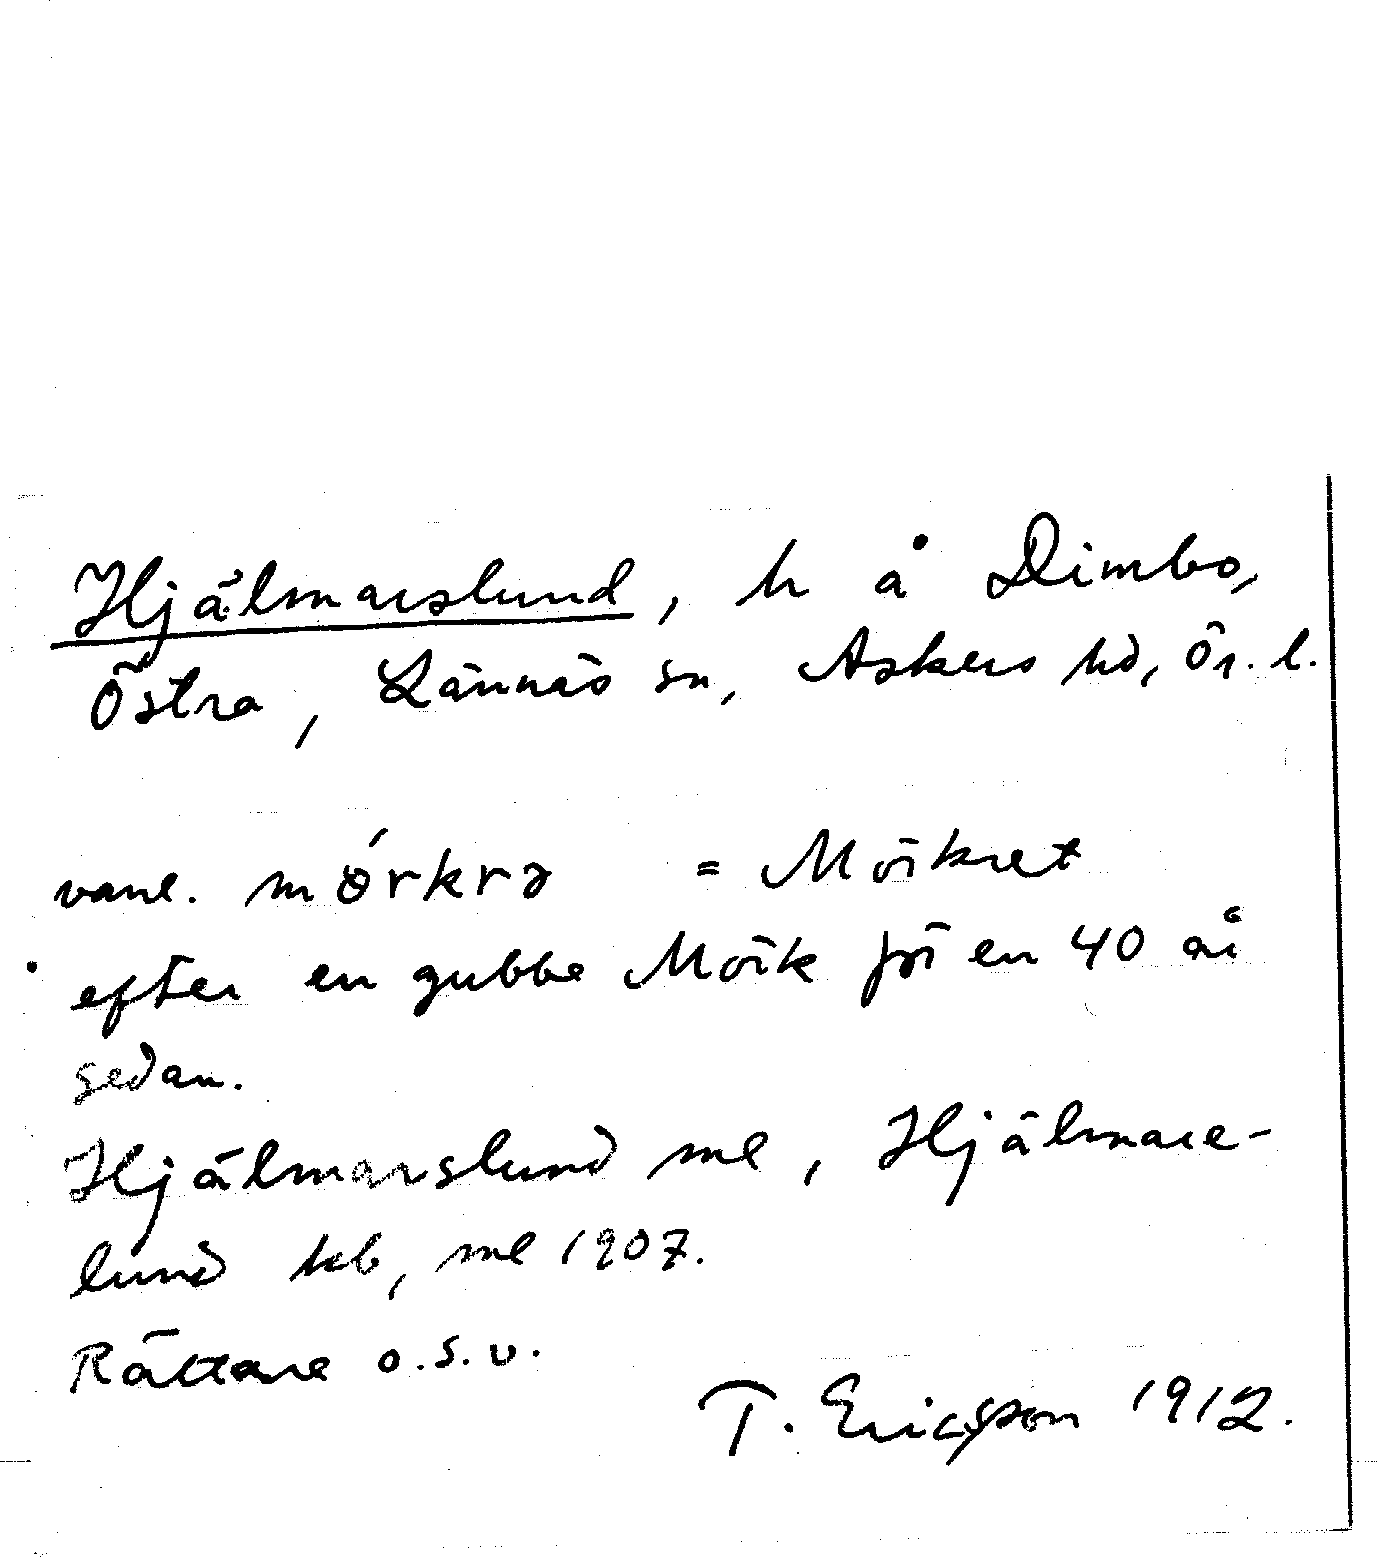 Hjälmarslund, h å Dimbo,
Östra, Lännäs sn, Askers hd, Ör. l.
vanl. mórkrə = Mörkret
efter en gubbe Mörk för en 40 år
sedan.
Hjälmarslund ml, Hjälmare-
lund kb, ml 1907.
Rättare o.s.v.
T. Ericsson 1912.